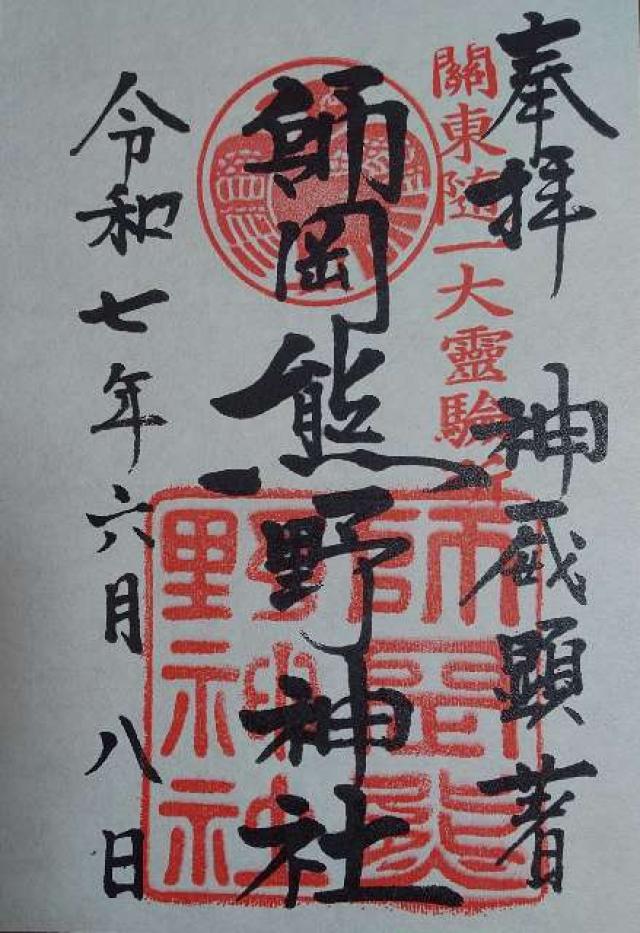 奉拝
關東随一大靈驗所
神威顕著
師岡熊野神社
師岡熊野神社
令和七年六月八日